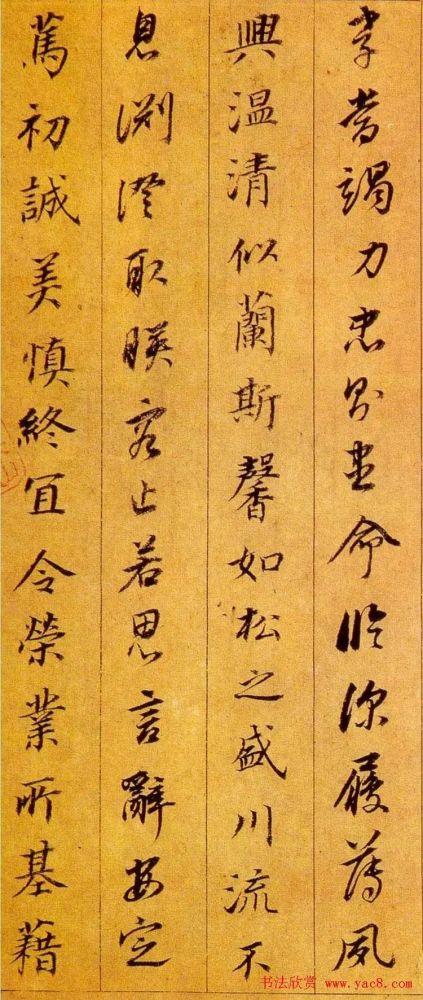 孝當竭力忠則盡命臨深履薄夙
興溫清似蘭斯馨如松之盛川流不
息淵澄取暎容止若思言辭安定
篤初誠美慎終宜令榮業所基藉
书法欣赏 www.yac8.com